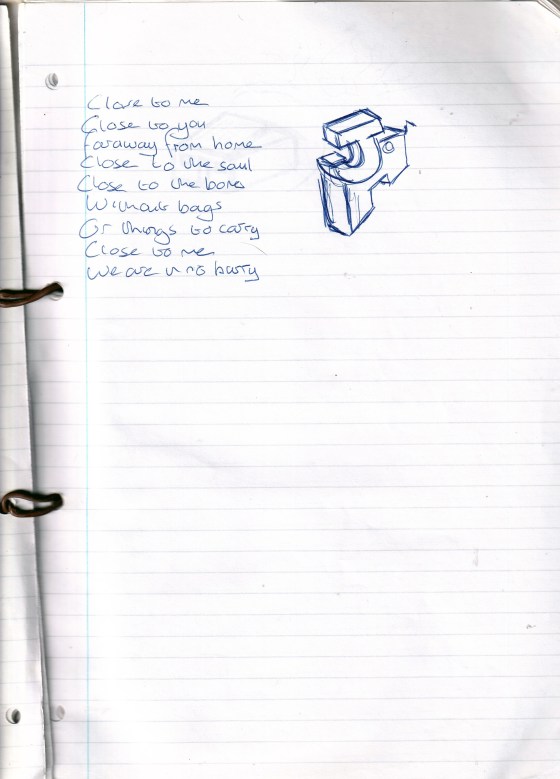 Close to me
Close to you
Faraway from home
Close to the soul
Close to the bones
Without bags
Or things to carry
Close to me
We are in no